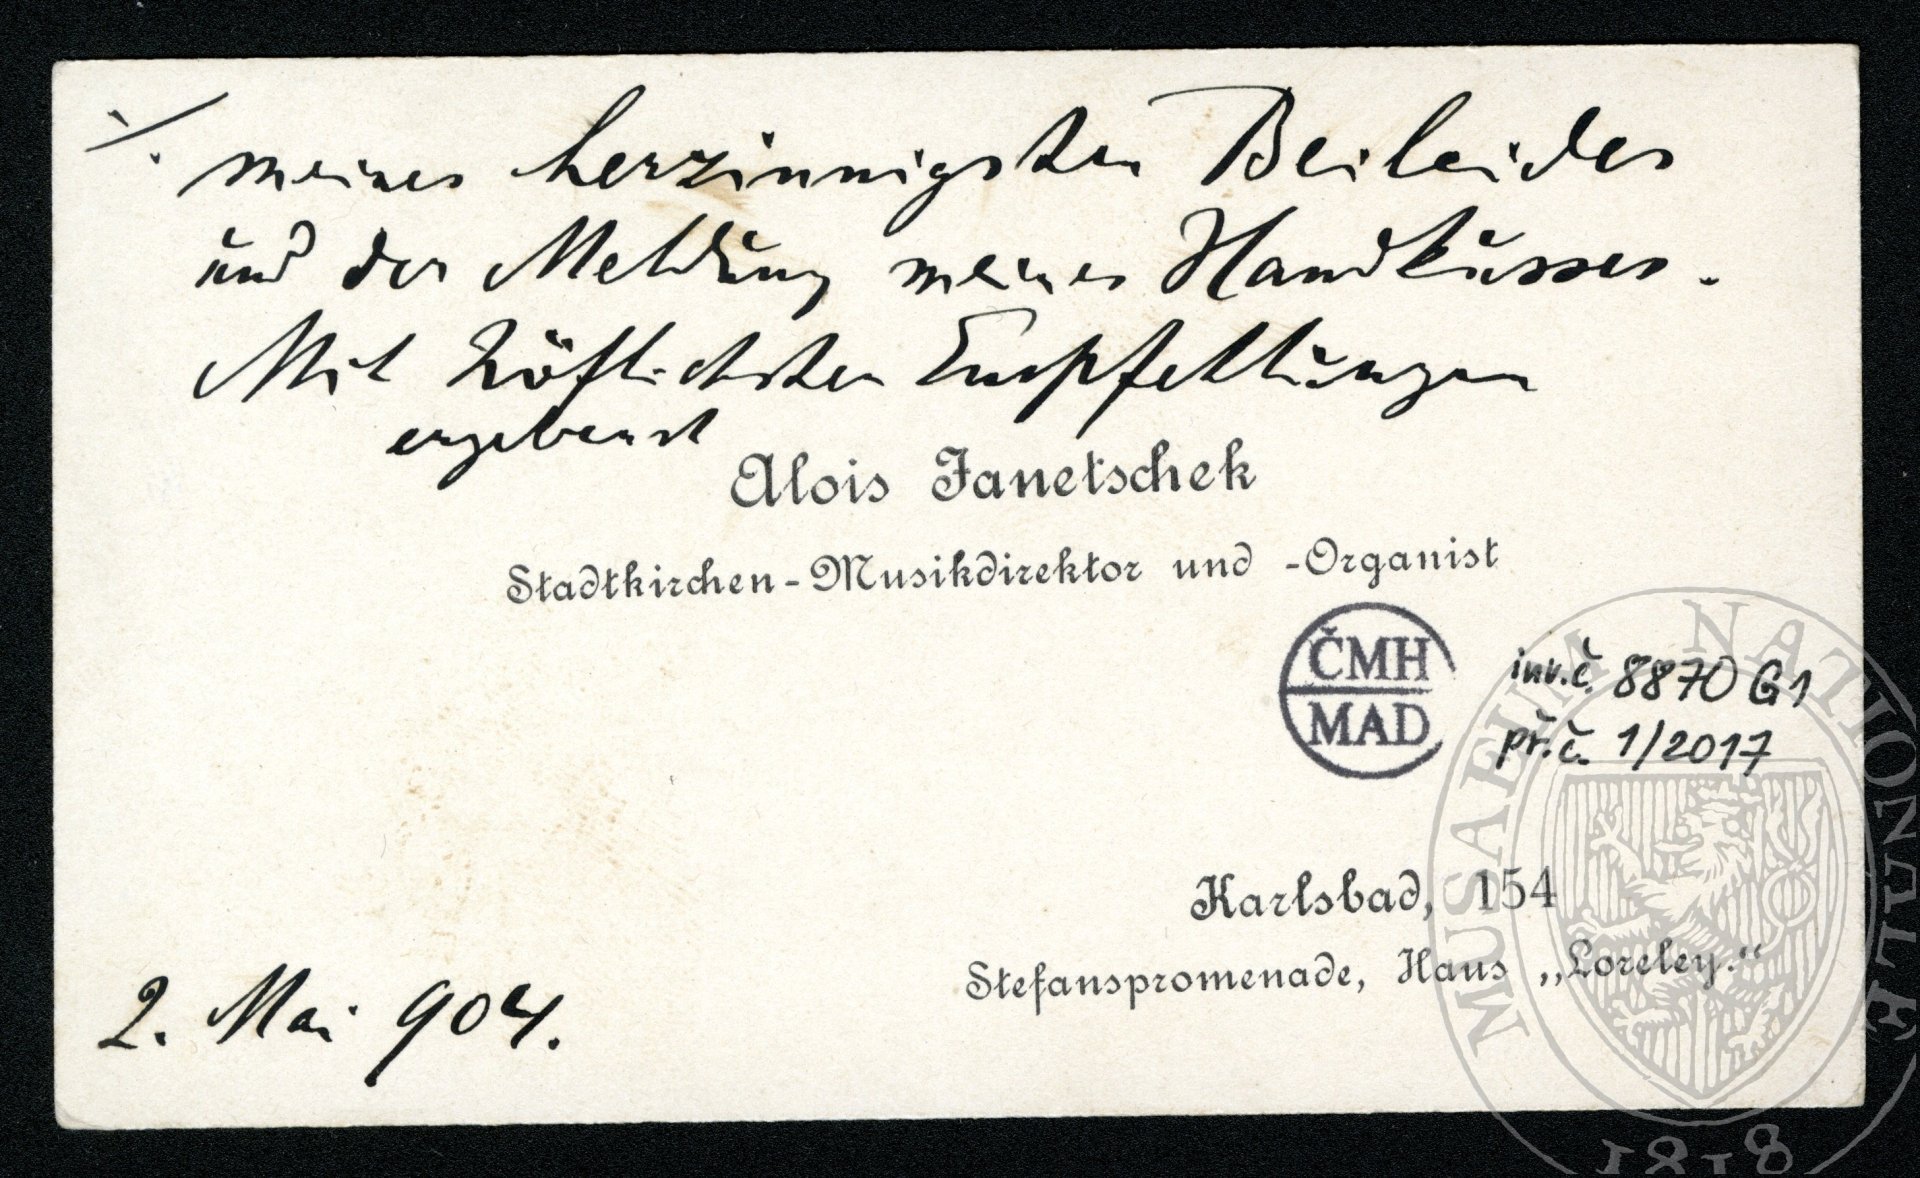 ./.
meines herzinnigsten Beileides
und der Meldung meines Handkusses.
Mit höflichsten Empfehlungen
ergebenst
Alois Janetschek
Stadtkirchen-Musikdirektor und -Organist
ČMH
MAD
inv.č. 8870 G1
př.č. 1/2017
Karlsbad, 154
Stefanspromenade, Haus „Loreley.“
2. Mai 904.
MUSAEUM NATIONALE
1818